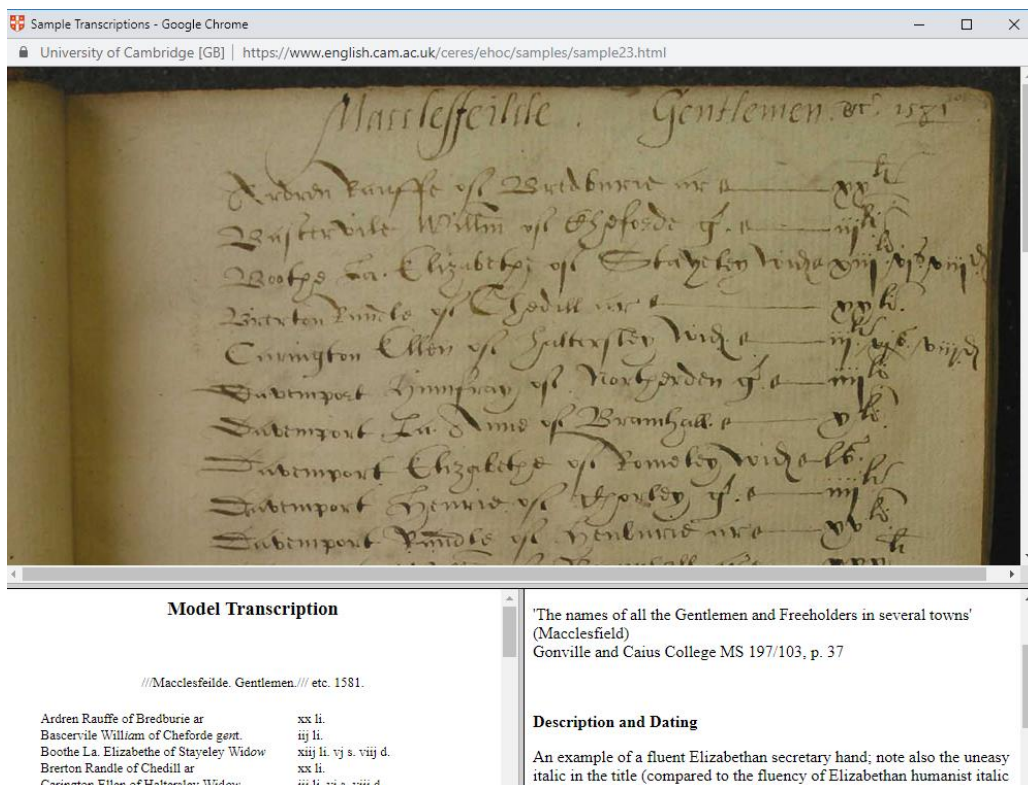 Sample Transcriptions - Google Chrome
University of Cambridge [GB] | https://www.english.cam.ac.uk/ceres/ehoc/samples/sample23.html
Macclesfeilde. Gentlemen. etc. 1581
Ardren Rauffe of Bredburie ar xx li.
Bascervile Willm of Cheforde g. iij li.
Boothe La. Elizabethe of Stayeley Wid xiij li. vj s. viij d
Brerton Randle of Chedill ar xx li.
Carington Ellen of Haltersley Wid. iij li. vj s. viij d
Davemport Humfray of Northerden g. iiij li
Davemport La. Anne of Bramhall. v li.
Davemport Elizabethe of Romeley wid ls.
Davemport Henrie of Chorley g. iiij li
Davemport Randle of Henburie ar xv li.
Model Transcription
///Macclesfeilde. Gentlemen./// etc. 1581.
Ardren Rauffe of Bredburie ar xx li.
Bascervile William of Cheforde gent. iij li.
Boothe La. Elizabethe of Stayeley Widow xiij li. vj s. viij d.
Brerton Randle of Chedill ar xx li.
Carington Ellen of Haltersley Widow iij li. vj s. viij d.
'The names of all the Gentlemen and Freeholders in several towns'
(Macclesfield)
Gonville and Caius College MS 197/103, p. 37
Description and Dating
An example of a fluent Elizabethan secretary hand; note also the uneasy
italic in the title (compared to the fluency of Elizabethan humanist italic